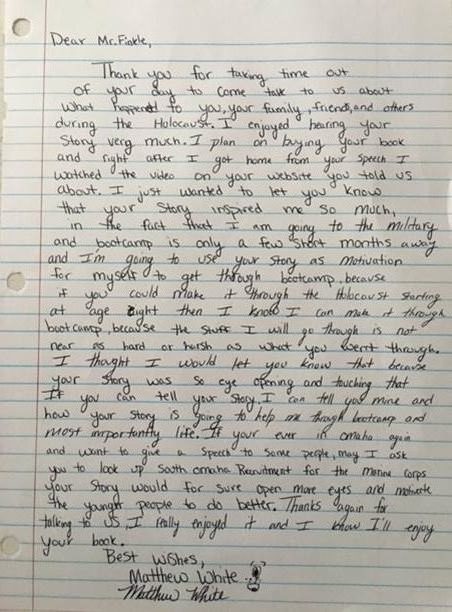 Dear Mr. Finkle,
Thank you for taking time out
of your day to come talk to us about
what happened to you, your family, friends, and others
during the Holocaust. I enjoyed hearing your
story very much. I plan on buying your book
and right after I got home from your speech I
watched the video on your website you told us
about. I just wanted to let you know
that your story inspired me so much,
in the fact that I am going to the military
and bootcamp is only a few short months away
and I'm going to use your story as motivation
for myself to get through bootcamp, because
if you could make it through the Holocaust starting
at age eight then I know I can make it through
bootcamp, because the stuff I will go through is not
near as hard or harsh as what you went through.
I thought I would let you know that because
your story was so eye opening and touching that
If you can tell your story, I can tell you mine and
how your story is going to help me through bootcamp and
most importantly life. If your ever in omaha again
and want to give a speech to some people, may I ask
you to look up South omaha Recruitment for the marine corps
your story would for sure open more eyes and motivate
the younger people to do better. Thanks again for
talking to us, I really enjoyed it and I know I'll enjoy
your book.
Best Wishes,
Matthew White
Matthew White